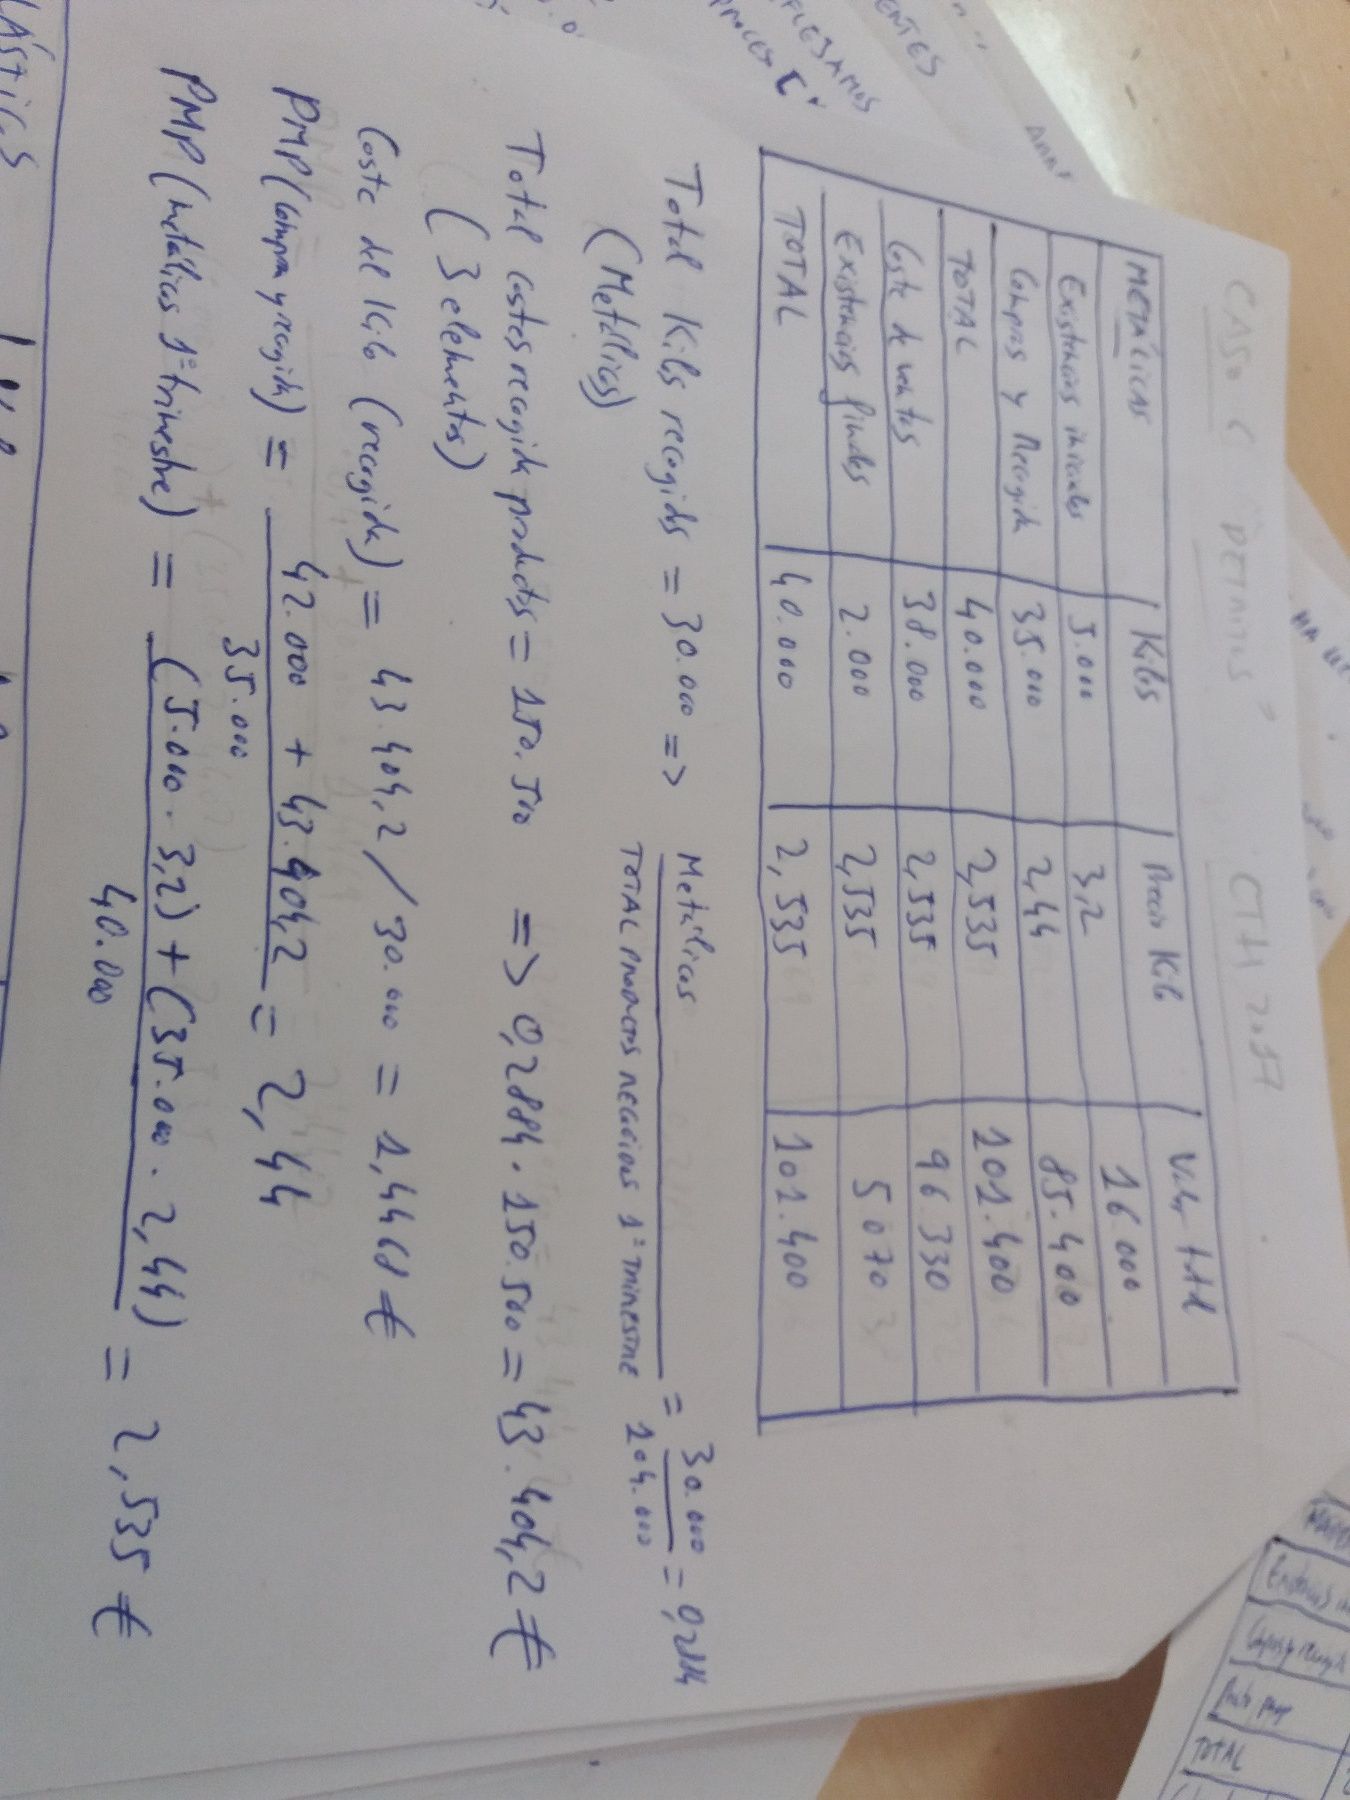 CASO C DETRITUS CTH, 2017
METÁLICAS Kilos Precio Kilo Valor total
Existencias iniciales 5.000 3,2 16.000
Compras y Recogida 35.000 2,44 85.400
TOTAL 40.000 2,535 101.400
Coste de ventas 38.000 2,535 96.330
Existencias finales 2.000 2,535 5070
TOTAL 40.000 2,535 101.400
Total Kilos recogidos = 30.000 => Metálicas / TOTAL PRODUCTOS RECOGIDOS 1º TRIMESTRE = 30.000 / 104.000 = 0,2884
(Metálicas)
Total Costes recogida productos = 150.500 => 0,2884 · 150.500 = 43.404,2 €
(3 elementos)
Coste del Kilo (recogida) = 43.404,2 / 30.000 = 1,4468 €
PMP (Compra y recogida) = 42.000 + 43.404,2 / 35.000 = 2,44
PMP (metálicas 1º trimestre) = (5.000 · 3,2) + (35.000 · 2,44) / 40.000 = 2,535 €
TOTAL